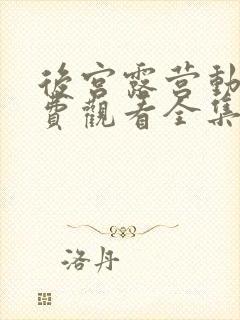 後宮露营動
費觀看全集
洛丹